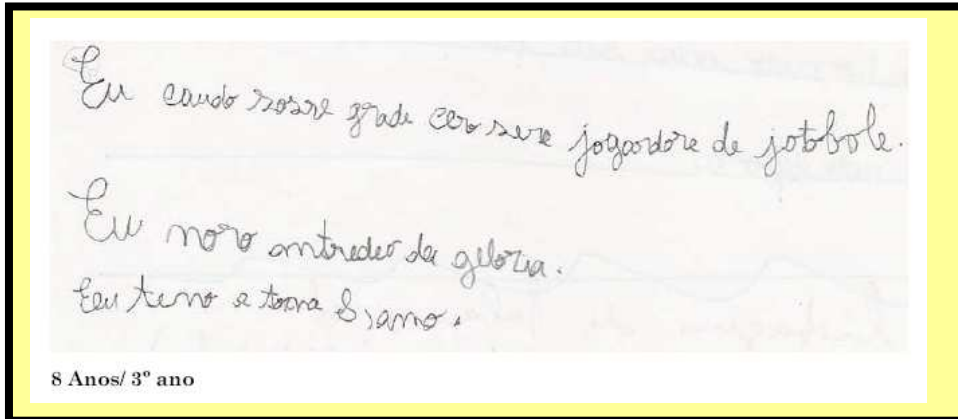 Eu caudo sosre grade cero sere jogardore de jotobole.
Eu moro antreder da geloria.
Eu temo a tona 8 , amo .
8 Anos/ 3º ano